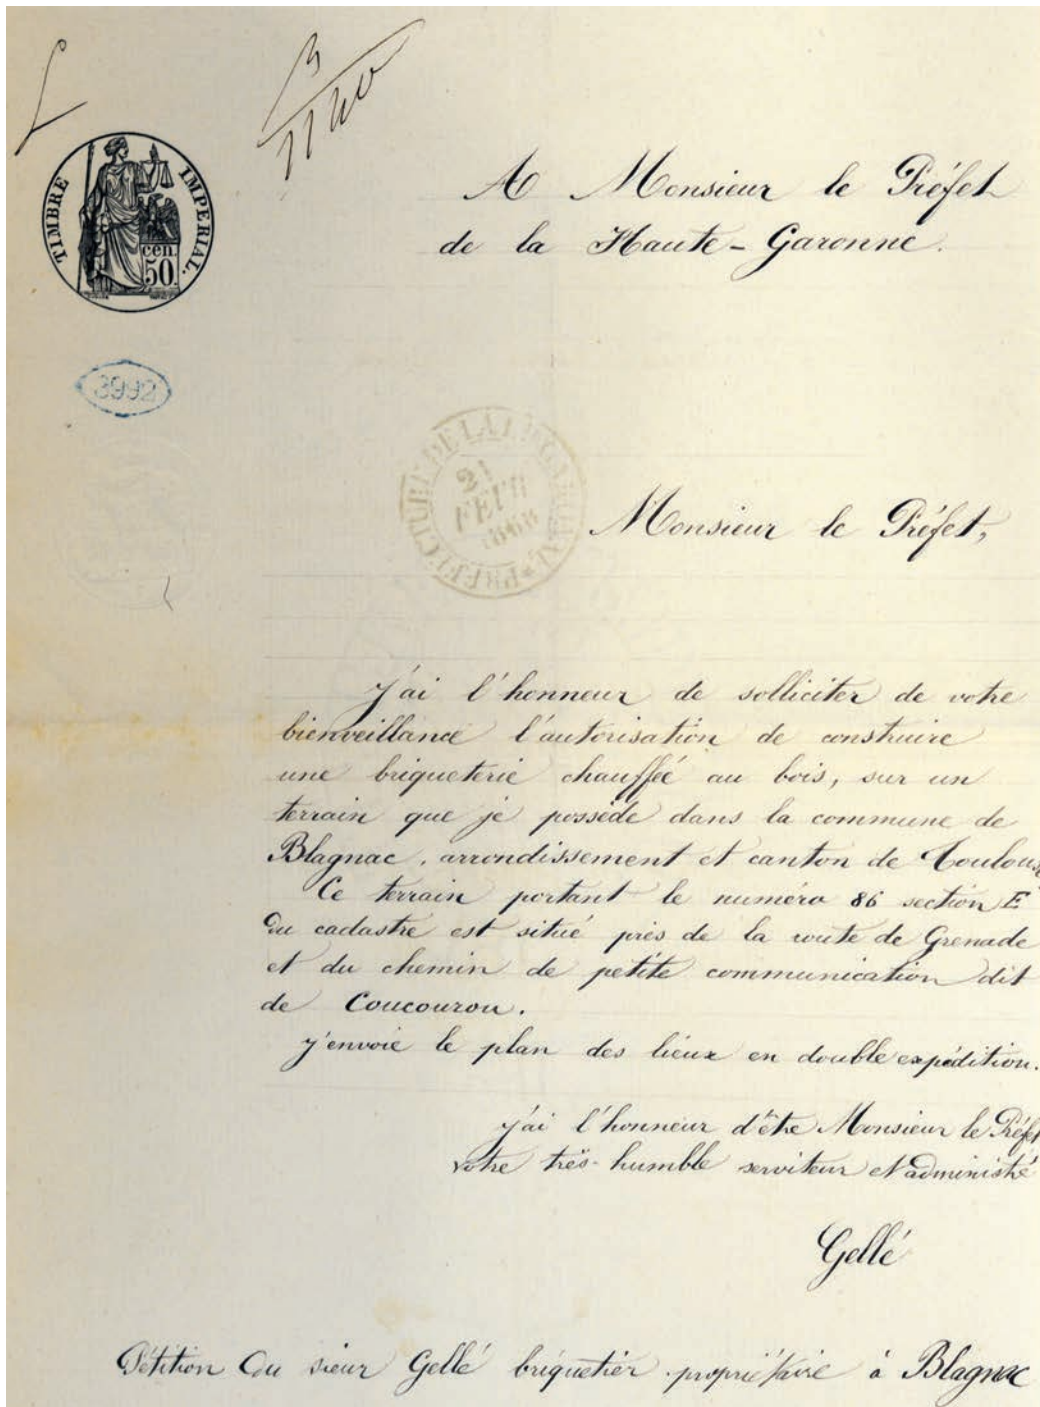 3
1140
TIMBRE IMPERIAL.
cen.
50
A Monsieur le Préfet
de la Haute-Garonne.
3992
PREFECTURE DE LA
21
FEVR
Monsieur le Préfet,
j'ai l'honneur de solliciter de votre
bienveillance l'autorisation de construire
une briqueterie chauffée au bois, sur un
terrain que je possède dans la commune de
Blagnac, arrondissement et canton de Toulouse
Ce terrain portant le numéro 86 section E
du cadastre est situé près de la route de Grenade
et du chemin de petite communication dit
de Coucourou.
j'envoie le plan des lieux en double expédition.
j'ai l'honneur d'être Monsieur le Préfet
votre très-humble serviteur et administré
Gellé
Pétition du sieur Gellé briquetier propriétaire à Blagnac